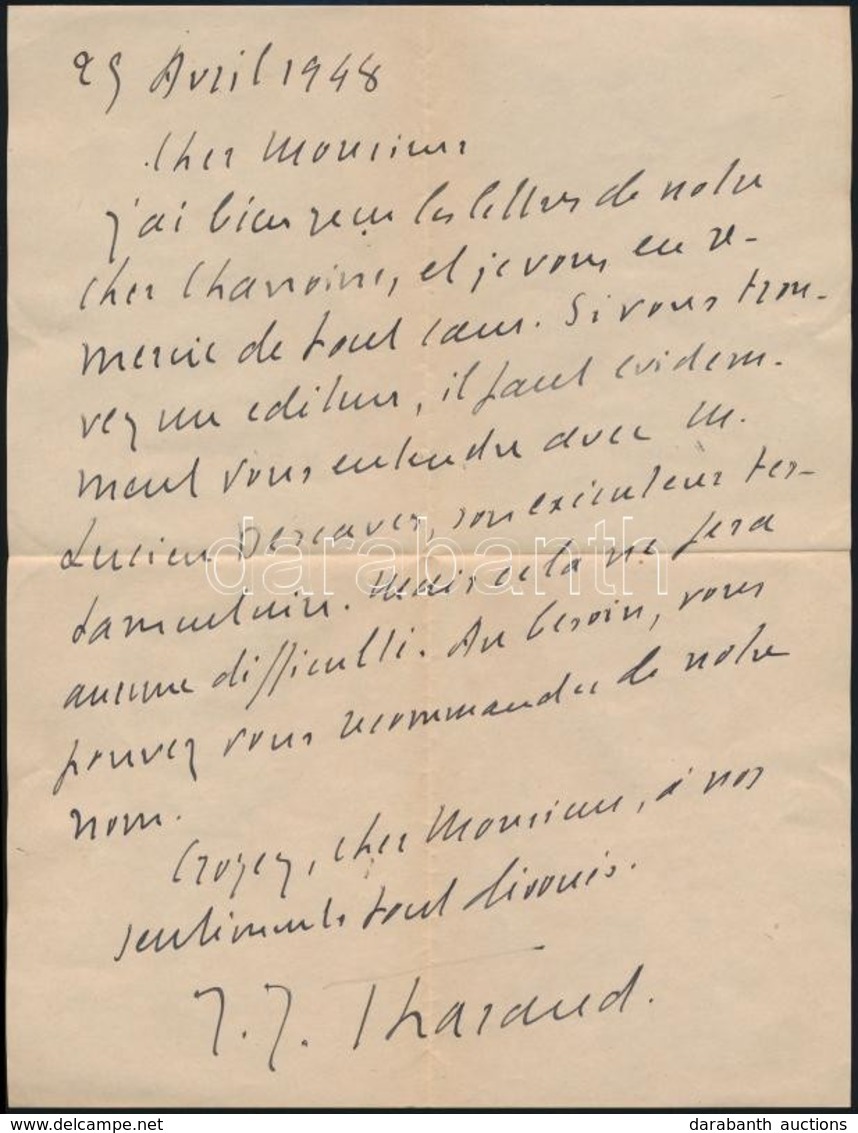 25 Avril 1948
Cher Monsieur
j'ai bien reçu les lettres de notre
cher Chanoine, et je vous en re-
mercie de tout cœur. Si vous trou-
vez un editeur, il faut evidem-
ment vous entendre avec M.
Lucien Descaves, son exécuteur tes-
tamentaire. Mais cela ne fera
aucune difficulté. Au besoin, vous
pouvez vous recommander de notre
nom.
Croyez, cher Monsieur, à nos
sentiments tout dévoués.
J. J. Tharaud.
darabanth
delcampe.net
darabanth auctions